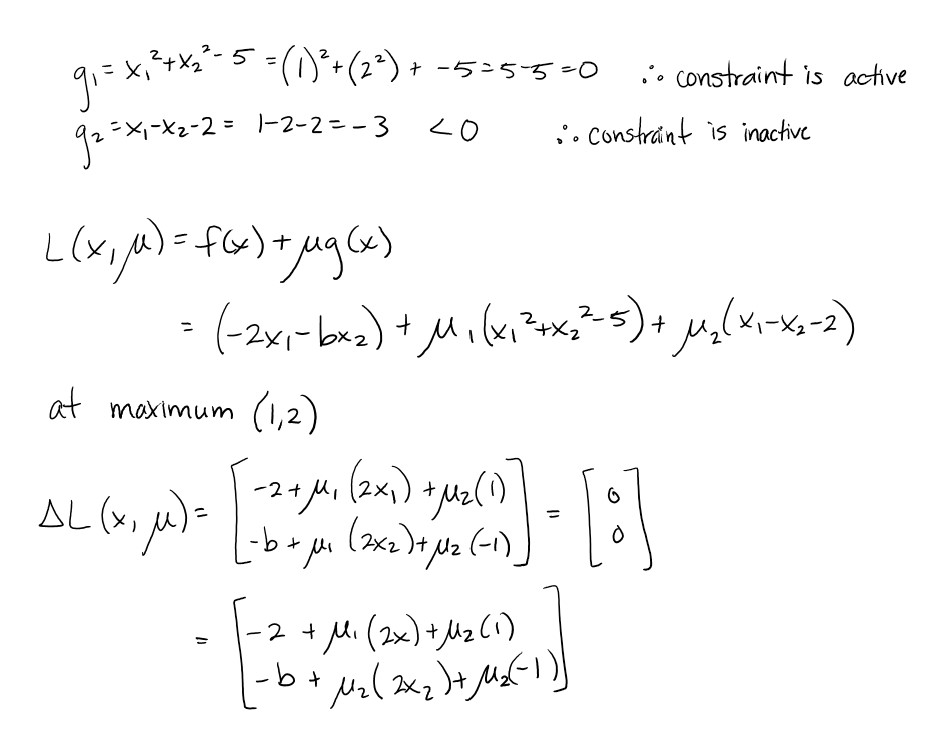 g₁ = x₁² + x₂² - 5 = (1)² + (2²) + -5 = 5-5 = 0 ∴ constraint is active
g₂ = x₁ - x₂ - 2 = 1-2-2 = -3 < 0 ∴ constraint is inactive
L(x, μ) = f(x) + μg(x)
= (-2x₁ - bx₂) + μ₁(x₁² + x₂² - 5) + μ₂(x₁ - x₂ - 2)
at maximum (1,2)
ΔL(x, μ) = [-2 + μ₁(2x₁) + μ₂(1)] = [0]
[-b + μ₁(2x₂) + μ₂(-1)] [0]
= [-2 + μ₁(2x) + μ₂(1)]
[-b + μ₂(2x₂) + μ₂(-1)]